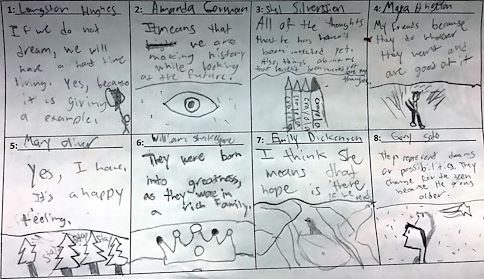 1: Langston Hughes
If we do not
dream, we will
have a hard time
living. Yes, because
it is giving
a example.
2: Amanda Gorman
It means that
we are
making history
while looking
at the future.
3: Shel Silverstein
All of the thoughts
that he has haven't
been invented yet.
Also, things about
the
thoughts
4:
My friends because
they do whatever
they want and
are good at it
5: Mary Oliver
Yes, I have.
It's a happy
feeling.
6: William Shakespeare
They were born
into greatness,
as they were in
a rich family.
7: Emily Dickenson
I think she
means that
hope is there
8: Gary Soto
They represent dreams
or possibilities. They
change
older.